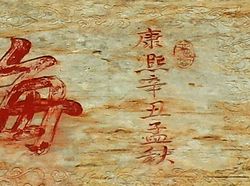 康熙辛丑孟秋
海